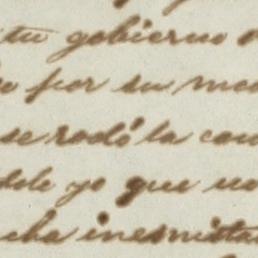 tu gobierno
por su me
se rodó la con
dole yo que no
cha inemista